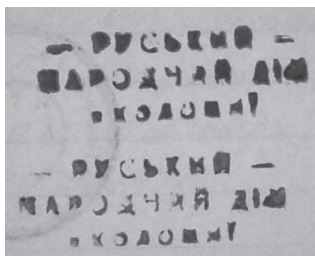 — РУСЬКИЙ —
НАРОДНИЙ ДІМ
в КОЛОМИЇ
— РУСЬКИЙ —
НАРОДНИЙ ДІМ
в КОЛОМИЇ